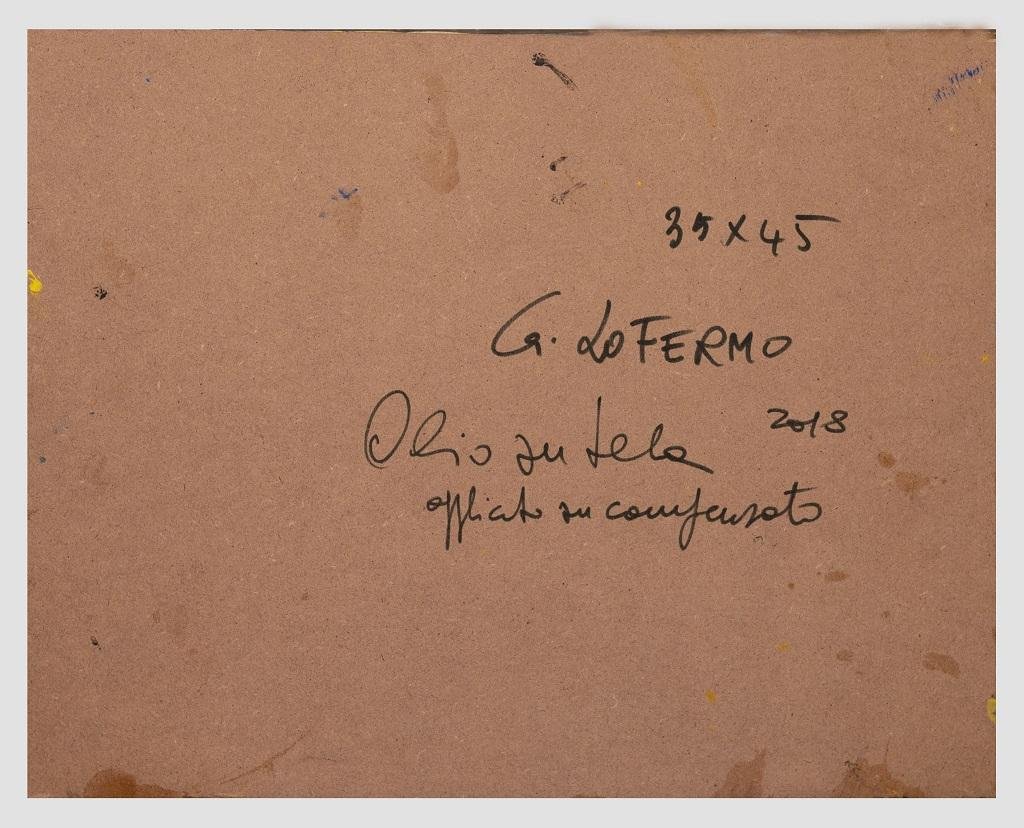 35 x 45
G. LOFERMO
Olio su tela 2018
applicato su compensato